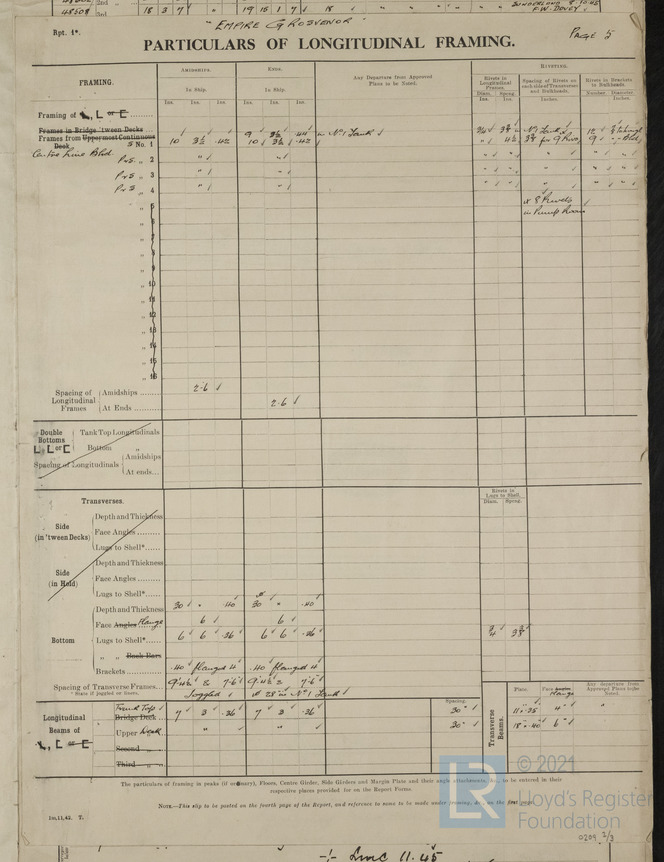 48508 18 3 7 " 19 15 1 7 18 " SUNDERLAND 8.10.45
P.W. DOVEY
Rpt. 1*. "EMPIRE GROSVENOR" PAGE 5
PARTICULARS OF LONGITUDINAL FRAMING.
FRAMING. AMIDSHIPS. ENDS. Any Departure from Approved Plans to be Noted. RIVETING.
In Ship. In Ship. Rivets in Longitudinal Frames. Spacing of Rivets on each side of Transverses and Bulkheads. Rivets in Brackets to Bulkheads.
Ins. Ins. Ins. Ins. Ins. Ins. Diam. Spcng. Inches. Number. Diameter.
Ins. Ins. Inches.
Framing of L, L or E
Frames in Bridge 'tween Decks 9 3½ .44 in No 1 Tank
Frames from Uppermost Continuous Deck S No. 1 10 3½ .42 10 3½ .42
Centre Line Blhd.
P&S " 2 " "
P&S " 3 " "
P&S " 4 " "
" 5 & 8 Rivets
" 6 in Pump Room
" 7
" 8
" 9
" 10
" 11
" 12
" 13
" 14
" 15
" 16
Spacing of Longitudinal Frames Amidships 2.6
At Ends 2.6
Double Bottoms L, L or E Tank Top Longitudinals
Bottom "
Spacing of Longitudinals Amidships
At ends
Transverses. Rivets in Lugs to Shell.
Diam. Spcng.
Side (in 'tween Decks) Depth and Thickness
Face Angles
Lugs to Shell*
Side (in Hold) Depth and Thickness
Face Angles
Lugs to Shell*
Bottom Depth and Thickness 30 " .40 30 " .40
Face Angles Flange 6 6
Lugs to Shell* 6 6 .36 6 6 .36
" " Back Bars
Brackets .40 flanged 4 .40 flanged 4
Spacing of Transverse Frames 9'4½ & 7'.6" 9'4½ & 7'.6"
* State if joggled or liners. Joggled & 28 in No 1 Tank
Spacing. Plate. Face Angles Flange Any departure from Approved Plans to be Noted.
Longitudinal Beams of L, L or E Trunk Top 7 3 .36 7 3 .36 30"
Bridge Deck
Upper Deck " " 30"
Second "
Third "
Transverse Beams. 11 × .35 4"
18 × .40 6"
The particulars of framing in peaks (if ordinary), Floors, Centre Girder, Side Girders and Margin Plate and their angle attachments, &c., to be entered in their
respective places provided for on the Report Forms.
NOTE.—This slip to be posted on the fourth page of the Report, and reference to same to be made under framing, &c., on the first page.
1m,11,42. T.
© 2021
LR
Lloyd's Register
Foundation
0209 2/3
LMC 11.45